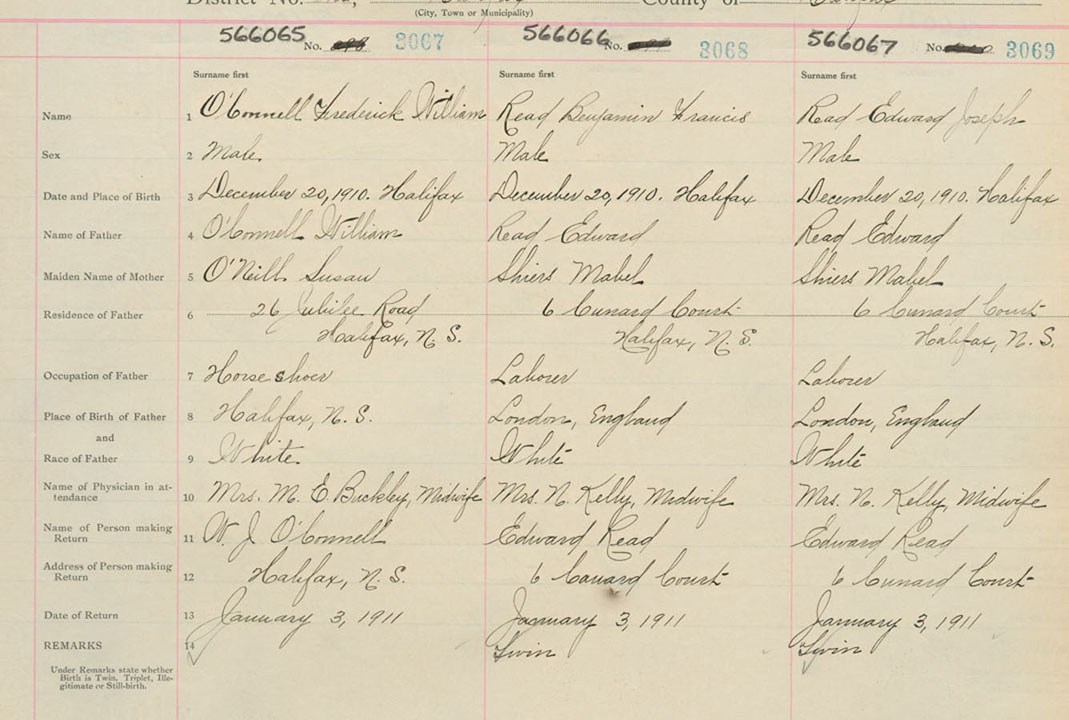 District No.
County of
(City, Town or Municipality)
566065 No. 3067
566066 No. 3068
566067 No. 3069
Surname first
Surname first
Surname first
Name 1 O'Connell Frederick William
Read Benjamin Francis
Read Edward Joseph
Sex 2 Male.
Male
Male
Date and Place of Birth 3 December 20, 1910. Halifax
December 20, 1910. Halifax
December 20, 1910. Halifax
Name of Father 4 O'Connell William
Read Edward
Read Edward
Maiden Name of Mother 5 O'Neill Susan
Shiers Mabel
Shiers Mabel
Residence of Father 6 26 Jubilee Road
Halifax, N. S.
6 Cunard Court
Halifax, N. S.
6 Cunard Court
Halifax, N. S.
Occupation of Father 7 Horse shoer
Laborer
Laborer
Place of Birth of Father 8 Halifax, N. S.
London, England
London, England
and
Race of Father 9 White.
White
White
Name of Physician in at-
tendance 10 Mrs. M. E. Buckley, Midwife
Mrs. N. Kelly, Midwife
Mrs. N. Kelly, Midwife
Name of Person making
Return 11 W. J. O'Connell
Edward Read
Edward Read
Address of Person making
Return 12 Halifax, N. S.
6 Cunard Court
6 Cunard Court
Date of Return 13 January 3, 1911
January 3, 1911
January 3, 1911
REMARKS 14
Twin
Twin
Under Remarks state whether
Birth is Twin, Triplet, Ille-
gitimate or Still-birth.